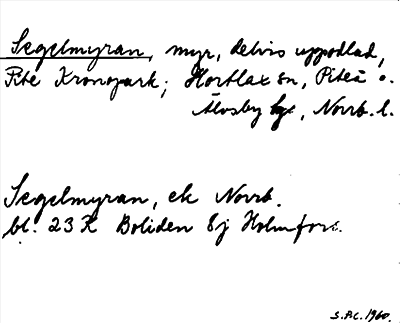 Segelmyran, myr, delvis uppodlad,
Pite Kronopark; Hortlax sn, Piteå o.
Älvsby tg, Norrb. l.
Segelmyran, ek Norrb.
bl. 23 K Boliden 8j Holmfors.
S.P.C. 1960.